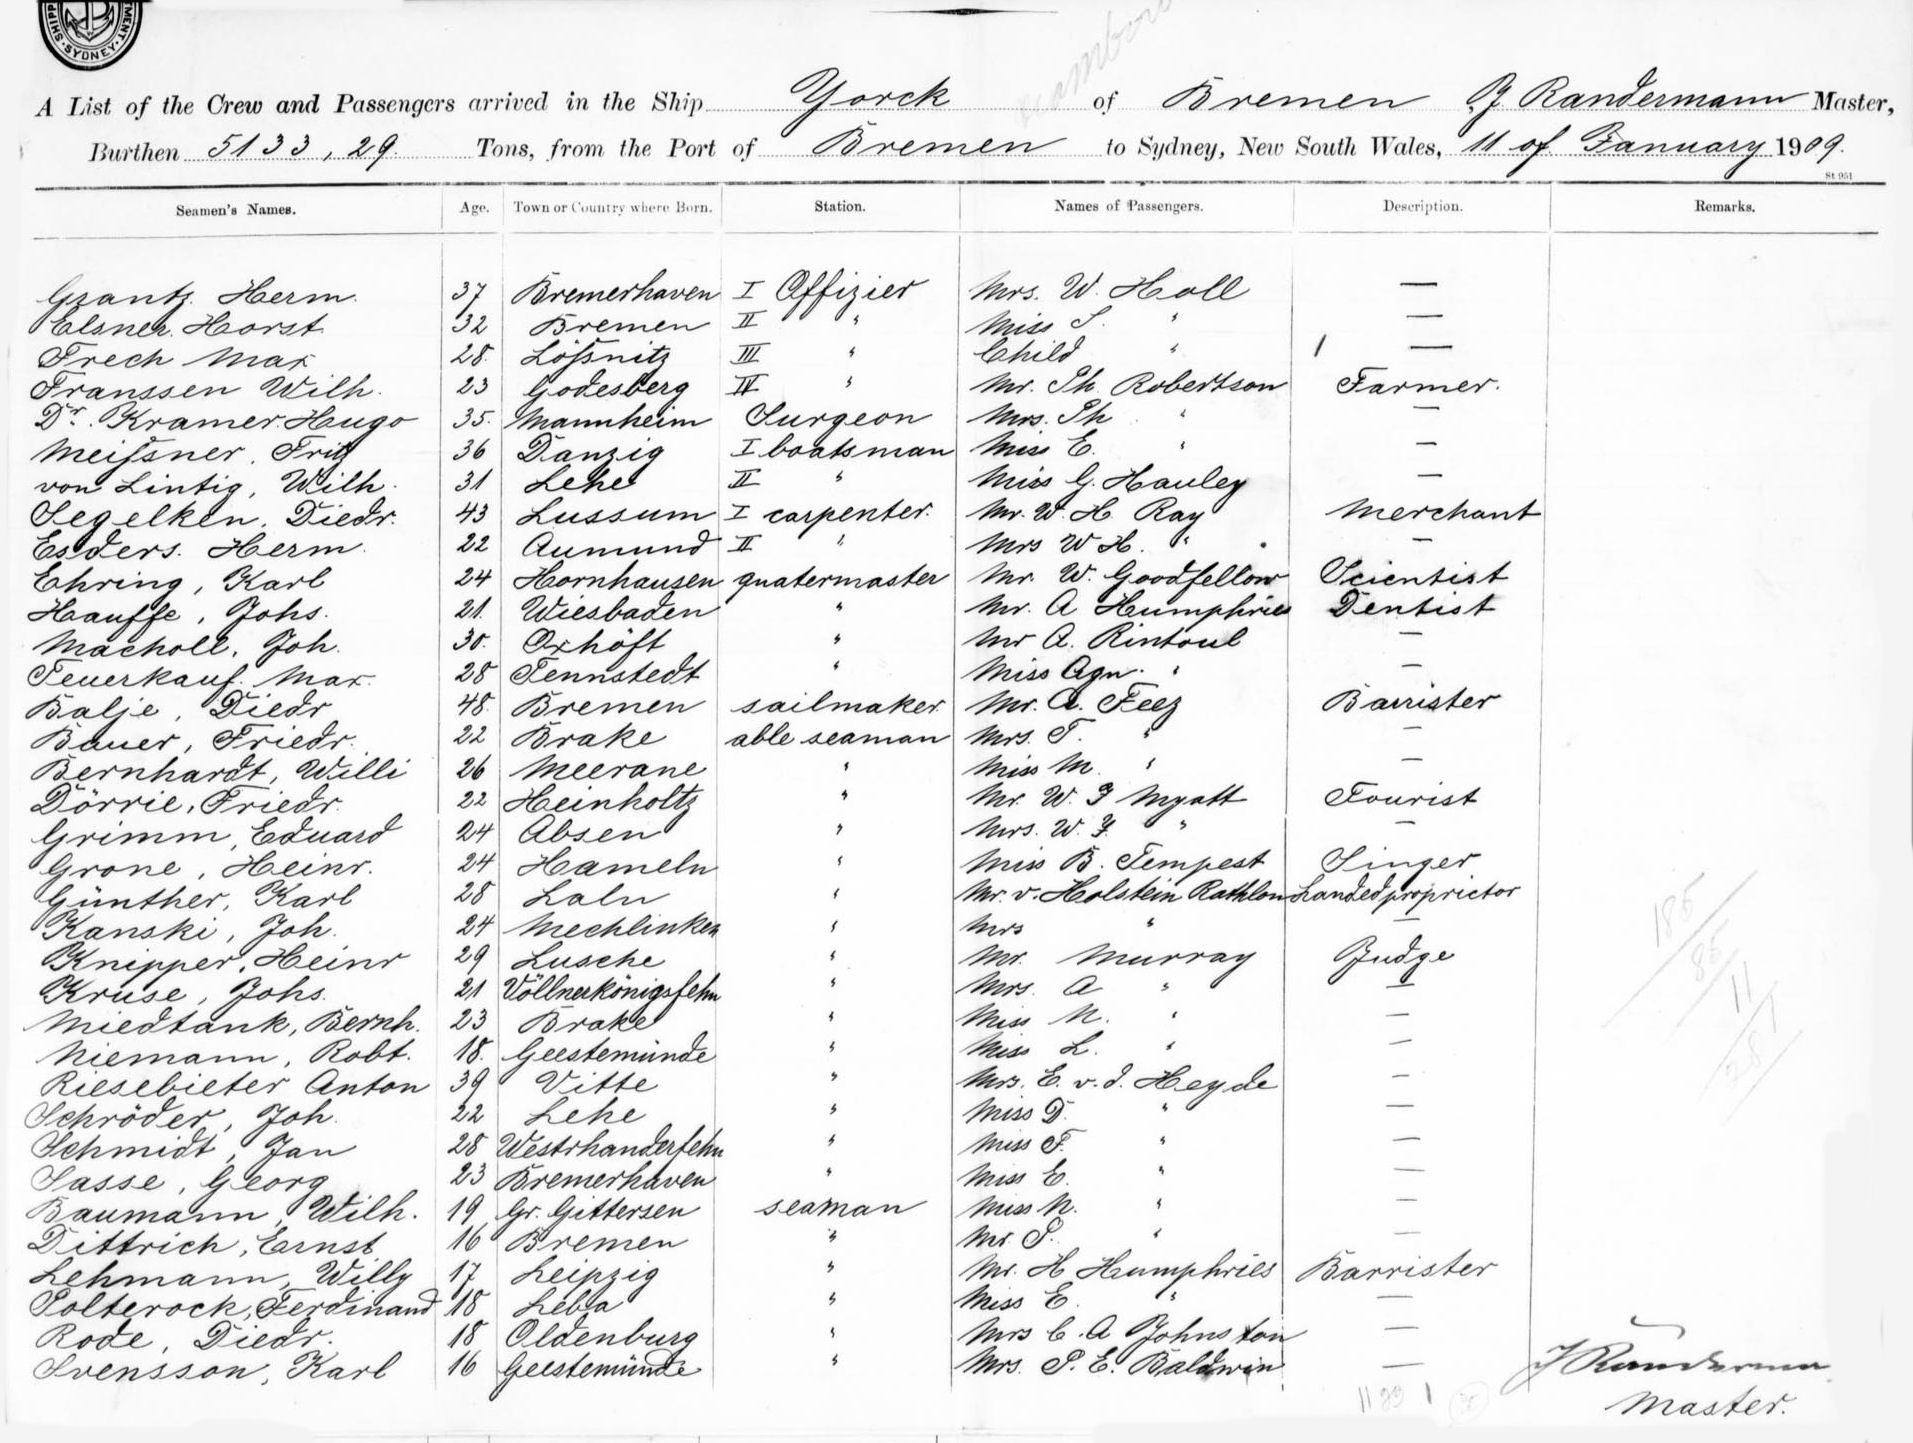 SYDNEY
A List of the Crew and Passengers arrived in the Ship Yorck of Bremen, J. Randermann Master,
Burthen 5133,29. Tons, from the Port of Bremen to Sydney, New South Wales, 11 of January 1909.
St 951
Seamen's Names. Age. Town or Country where Born. Station. Names of Passengers. Description. Remarks.
Grantz. Herm. 37 Bremerhaven I Offizier Mrs. W. Holl —
Elsner. Horst 32 Bremen II " Miss S. " —
Frech Max 28 Lößnitz III " Child " 1 —
Franssen Wilh. 23 Godesberg IV " Mr. Th. Robertson Farmer.
Dr. Kramer. Hugo 35. Mannheim Surgeon Mrs. Th " —
Meißner, Fritz 36 Danzig I boatsman Miss E. " —
von Lintig, Wilh. 31 Lehe II " Miss G. Hauley —
Segelken, Diedr. 43 Lussum I carpenter. Mr. W. H. Ray Merchant
Esders. Herm. 22 Aumund II " Mrs W H. " —
Ehring, Karl 24 Hornhausen quatermaster Mr. W. Goodfellow Scientist
Hauffe, Johs. 21. Wiesbaden " Mr. A Humphries Dentist
Macholl, Joh. 30. Oxhöft " Mr A. Rintoul —
Feuerkauf. Max. 28 Tennstedt " Miss Agn. " —
Balje, Diedr 48. Bremen sailmaker. Mr. A. Feez Barrister
Bauer, Friedr. 22 Brake able seaman Mrs. F. " —
Bernhardt, Willi 26 Meerane " Miss M. " —
Dörrie, Friedr. 22 Heinholtz " Mr. W. J Myatt Tourist
Grimm, Eduard 24 Absen " Mrs. W. J. " —
Grone, Heinr. 24 Hameln " Miss B. Tempest Singer
Günther, Karl 28 " Mr. v. Holstein Rathlou Landedproprietor
Kanski, Joh. 24 Mechlinken " Mrs " —
Knipper, Heinr 29 Lusche " Mr. Murray Judge
Kruse, Johs. 21 Völlnerkönigsfehn " Mrs. A " —
Miedtank, Bernh. 23 Brake " Miss N. " —
Niemann, Robt. 18. Geestemünde " Miss L. " —
Riesebieter Anton 39 Vitte " Mrs. E. v. d. Heyde —
Schröder, Joh. 22 Lehe " Miss D. " —
Schmidt, Jan 28 Westrhanderfehn " Miss F. " —
Sasse, Georg 23 Bremerhaven " Miss E. " —
Baumann, Wilh. 19 Gr. Gittersen seaman Miss N. " —
Dittrich, Ernst 16 Bremen " Mr. P. " —
Lehmann, Willy 17 Leipzig " Mr. H Humphries Barrister
Polterock, Ferdinand 18 Leba " Miss E. " —
Rode, Diedr. 18 Oldenburg " Mrs C. A Johnston —
Svensson, Karl 16 Geestemünde " Mrs. P. E. Baldwin —
J Randermann
Master.